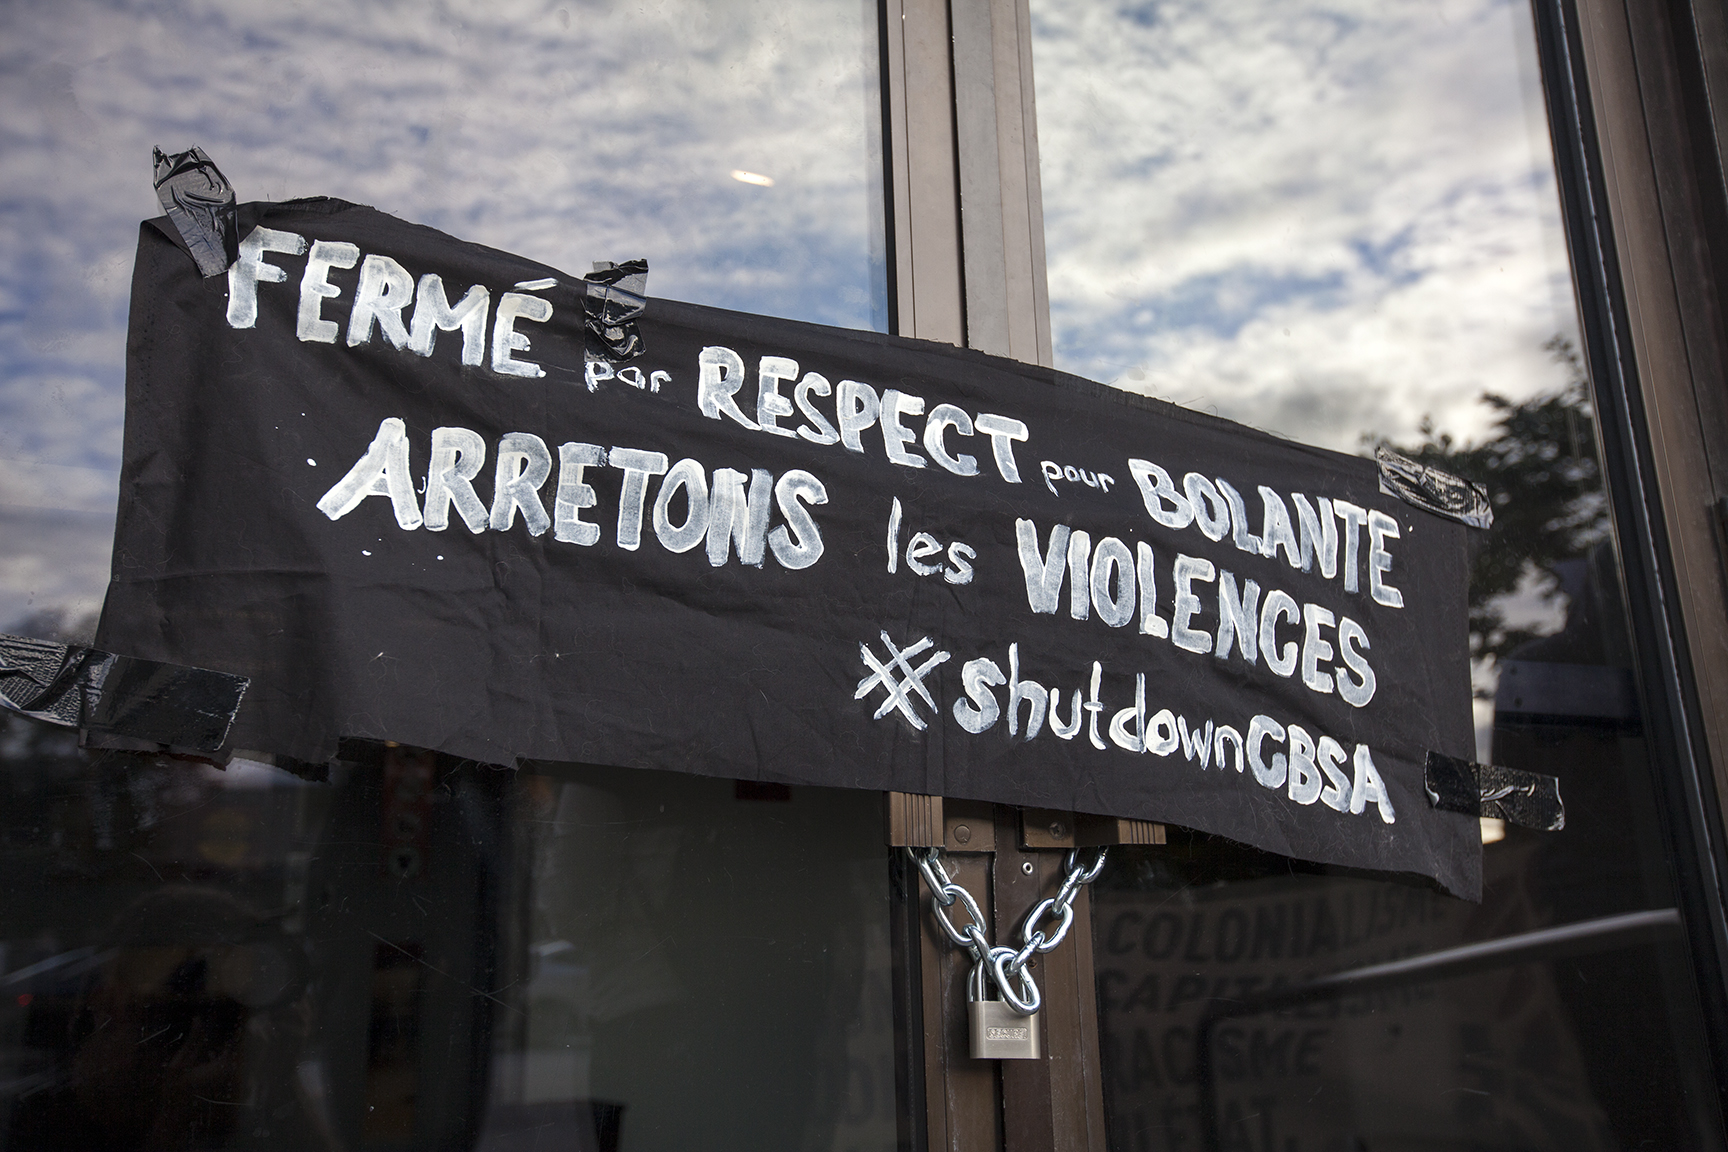 FERMÉ par RESPECT pour BOLANTE
ARRETONS les VIOLENCES
#shutdownCBSA
COLONIALISME
CAPITALISME
RACISME